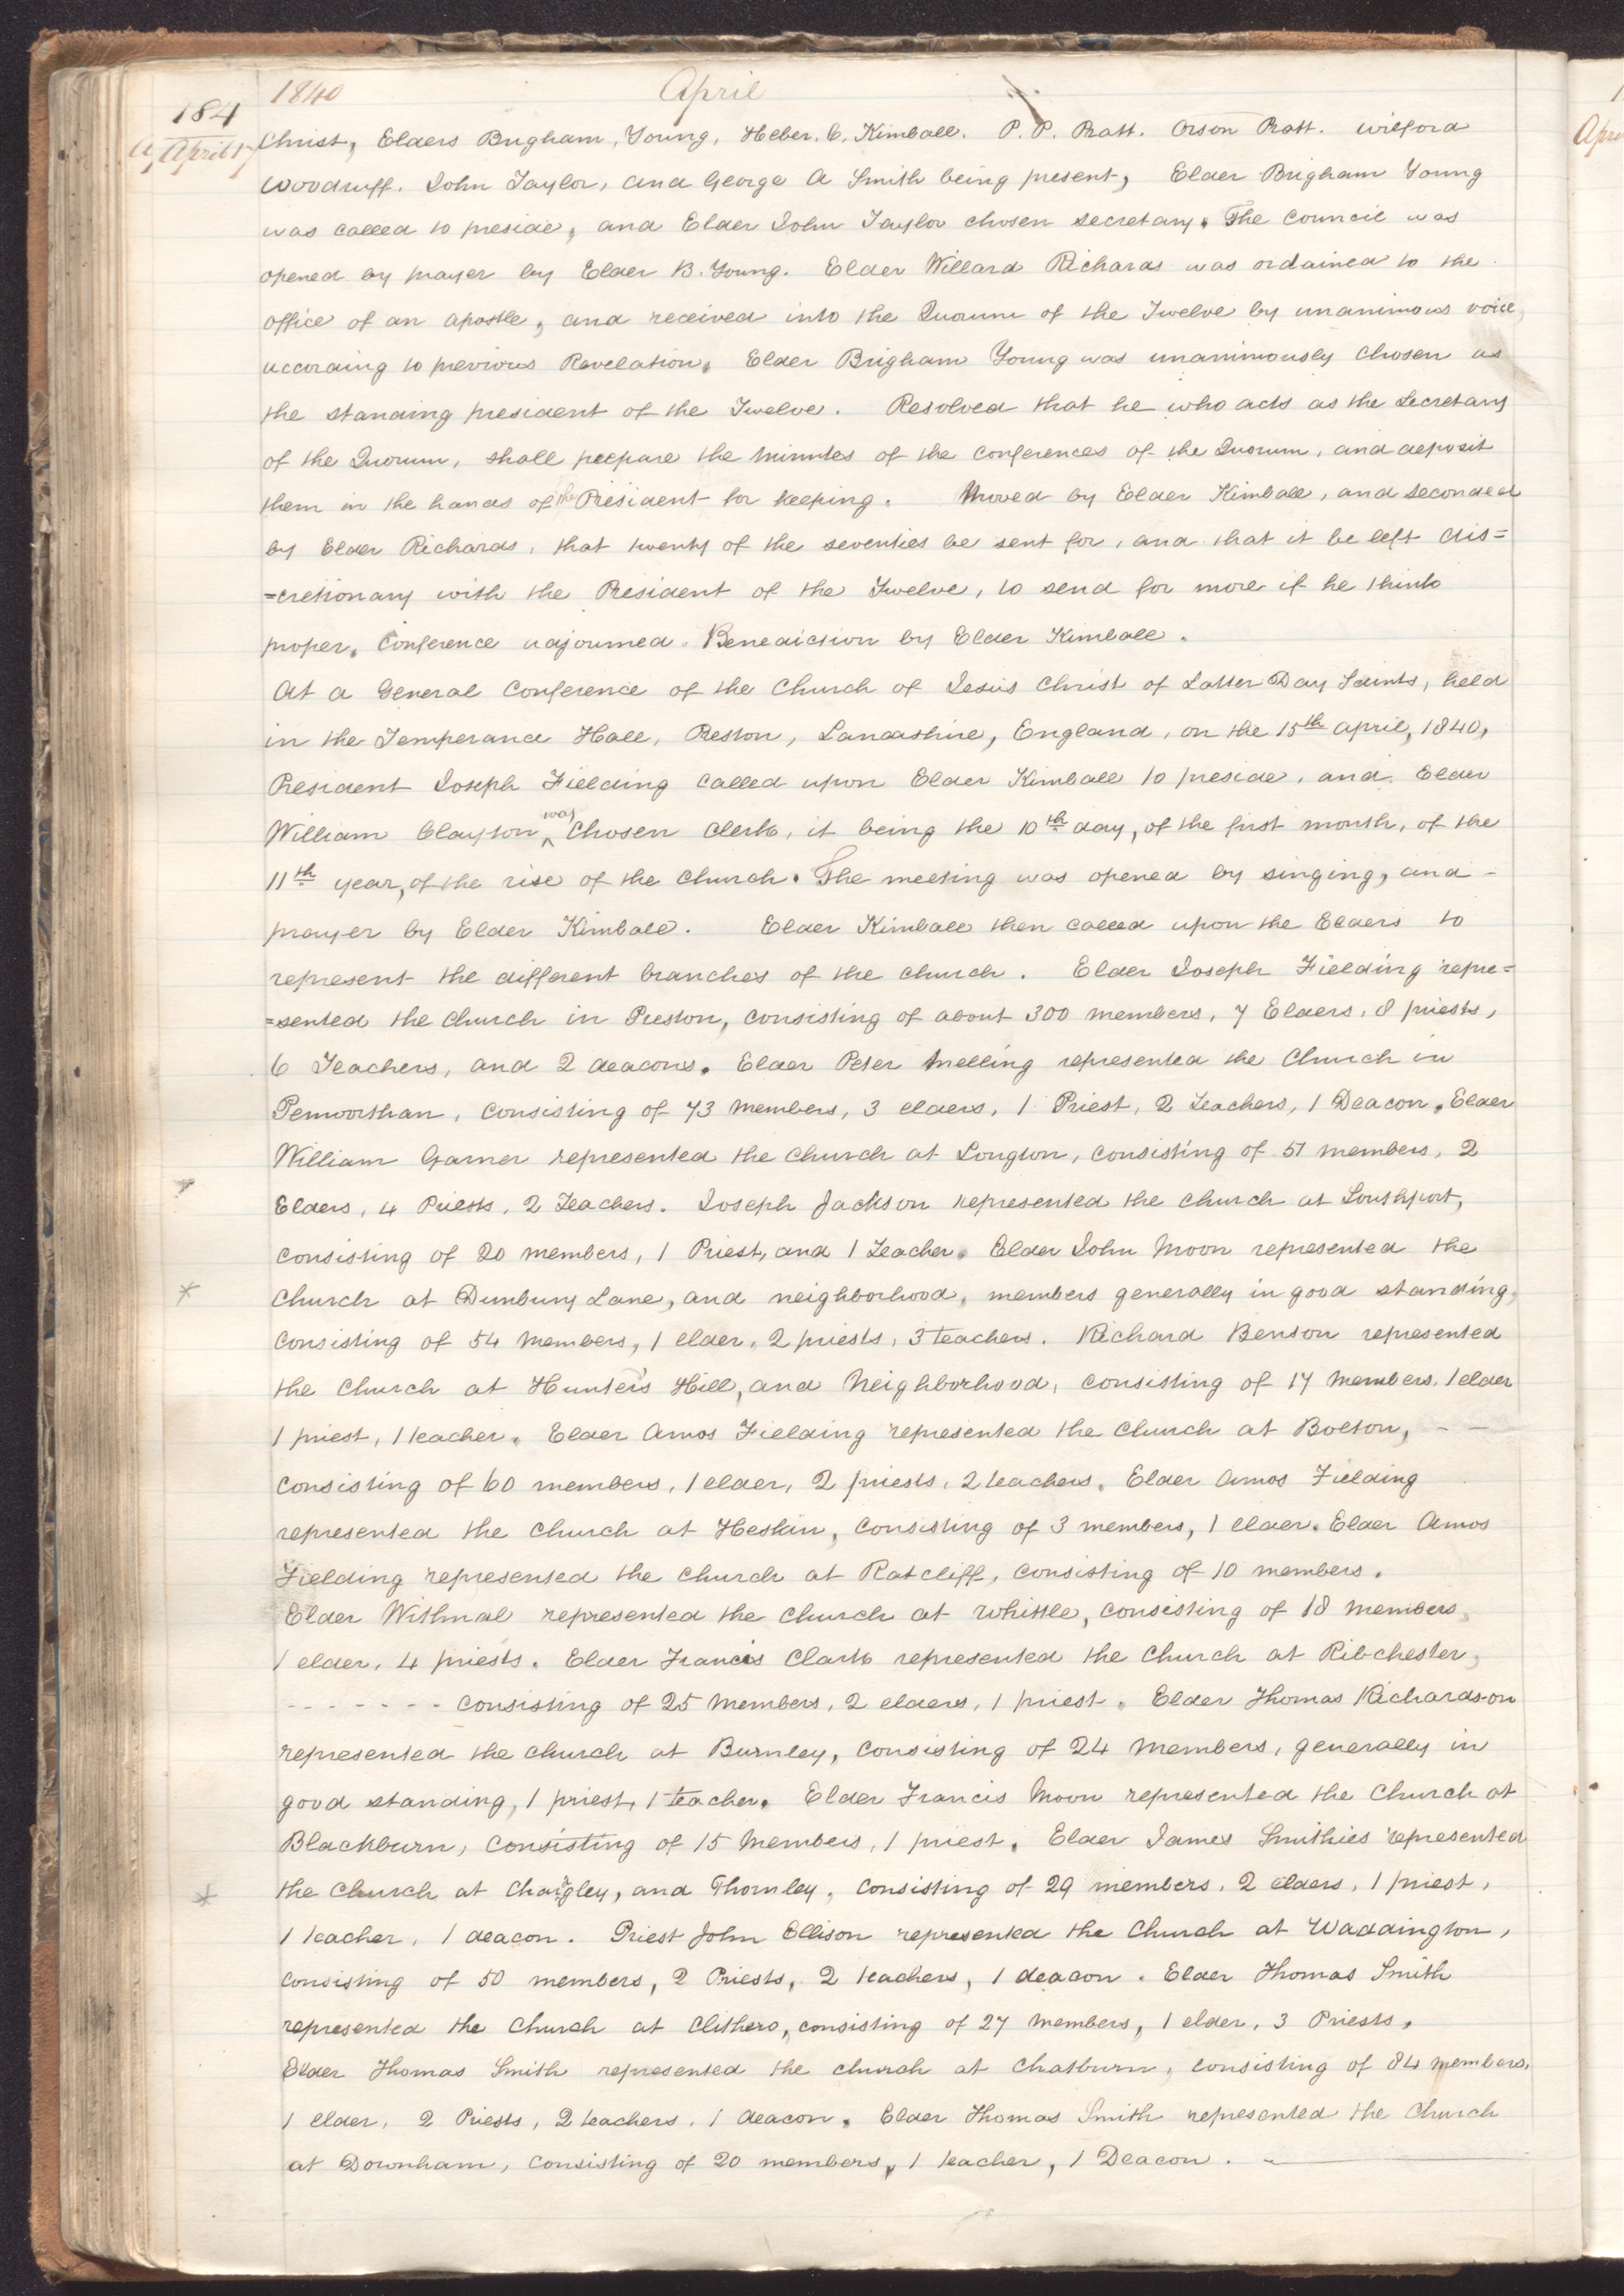 1840 April
184
April 17
Christ, Elders Brigham, Young, Heber. C, Kimball. P. P. Pratt. Orson Pratt. Wilford
Woodruff. John Taylor, and George A Smith being present, Elder Brigham Young
was called to preside, and Elder John Taylor chosen secretary. The Council was
opened by prayer by Elder B. Young. Elder Willard Richards was ordained to the
office of an apostle, and received into the Quorum of the Twelve by unanimous voice,
according to previous Revelation. Elder Brigham Young was unanimously chosen as
the standing president of the Twelve. Resolved that he who acts as the Secretary
of the Quorum, shall prepare the minutes of the conferences of the Quorum, and deposit
them in the hands of the President for keeping. Moved by Elder Kimball, and seconded
by Elder Richards, that twenty of the seventies be sent for, and that it be left dis=
=cretionary with the President of the Twelve, to send for more if he think
proper. Conference adjourned. Benediction by Elder Kimball.
At a General Conference of the Church of Jesus Christ of Latter Day Saints, held
in the Temperance Hall, Preston, Lancashire, England, on the 15th April, 1840,
President Joseph Fielding called upon Elder Kimball to preside, and Elder
William Clayton was Chosen Clerk, it being the 10th day, of the first month, of the
11th year, of the rise of the Church. The meeting was opened by singing, and -
prayer by Elder Kimball. Elder Kimball then called upon the Elders to
represent the different branches of the church. Elder Joseph Fielding repre=
=sented the Church in Preston, consisting of about 300 members, 7 Elders, 8 priests,
6 Teachers, and 2 deacons. Elder Peter Melling represented the Church in
Penworthan, consisting of 73 members, 3 elders, 1 Priest, 2 Teachers, 1 Deacon. Elder
William Garner represented the Church at Longton, consisting of 51 members, 2
Elders, 4 Priests, 2 Teachers. Joseph Jackson represented the church at Southport,
consisting of 20 members, 1 Priest, and 1 Teacher. Elder John Moon represented the
* Church at Dunbury Lane, and neighborhood, members generally in good standing,
consisting of 54 members, 1 elder, 2 priests, 3 teachers. Richard Benson represented
the Church at Hunter's Hill, and Neighborhood, consisting of 17 members. 1 elder
1 priest, 1 teacher. Elder Amos Fielding represented the Church at Bolton, - -
consisting of 60 members, 1 elder, 2 priests, 2 teachers. Elder Amos Fielding
represented the Church at Heskin, consisting of 3 members, 1 elder. Elder Amos
Fielding represented the Church at Ratcliff, consisting of 10 members.
Elder Withnal represented the Church at Whittle, consisting of 18 members,
1 elder, 4 priests. Elder Francis Clark represented the Church at Ribchester,
- - - - - - - consisting of 25 members, 2 elders, 1 priest. Elder Thomas Richardson
represented the church at Burnley, consisting of 24 members, generally in
good standing, 1 priest, 1 teacher. Elder Francis Moon represented the Church at
Blackburn, consisting of 15 members, 1 priest. Elder James Smithies represented
* the Church at Chaigley, and Thornley, consisting of 29 members, 2 elders, 1 priest,
1 teacher, 1 deacon. Priest John Ellison represented the Church at Waddington,
consisting of 50 members, 2 Priests, 2 teachers, 1 deacon. Elder Thomas Smith
represented the Church at Clithero, consisting of 27 members, 1 elder, 3 Priests.
Elder Thomas Smith represented the church at Chatburn, consisting of 84 members,
1 elder, 2 Priests, 2 teachers, 1 deacon. Elder Thomas Smith represented the Church
at Downham, consisting of 20 members, 1 teacher, 1 Deacon.